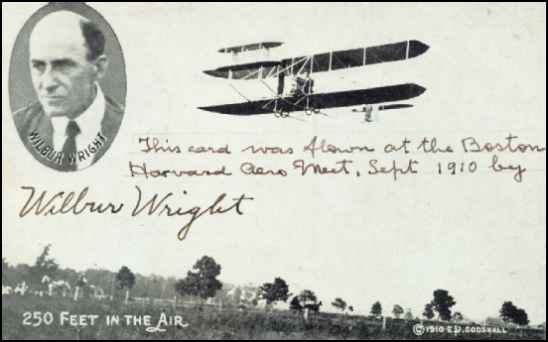 WILBUR WRIGHT
This card was flown at the Boston
Harvard Aero Meet, Sept 1910 by
Wilbur Wright
250 FEET IN THE AIR
© 1910 E.D. GODSHALL